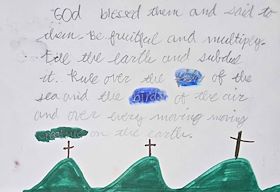 God blessed them and said to
them. Be fruitful and multiply.
Fill the earth and subdue
it. Rule over the fish of the
sea and the birds of the air
and over every moving moving
on the earth.